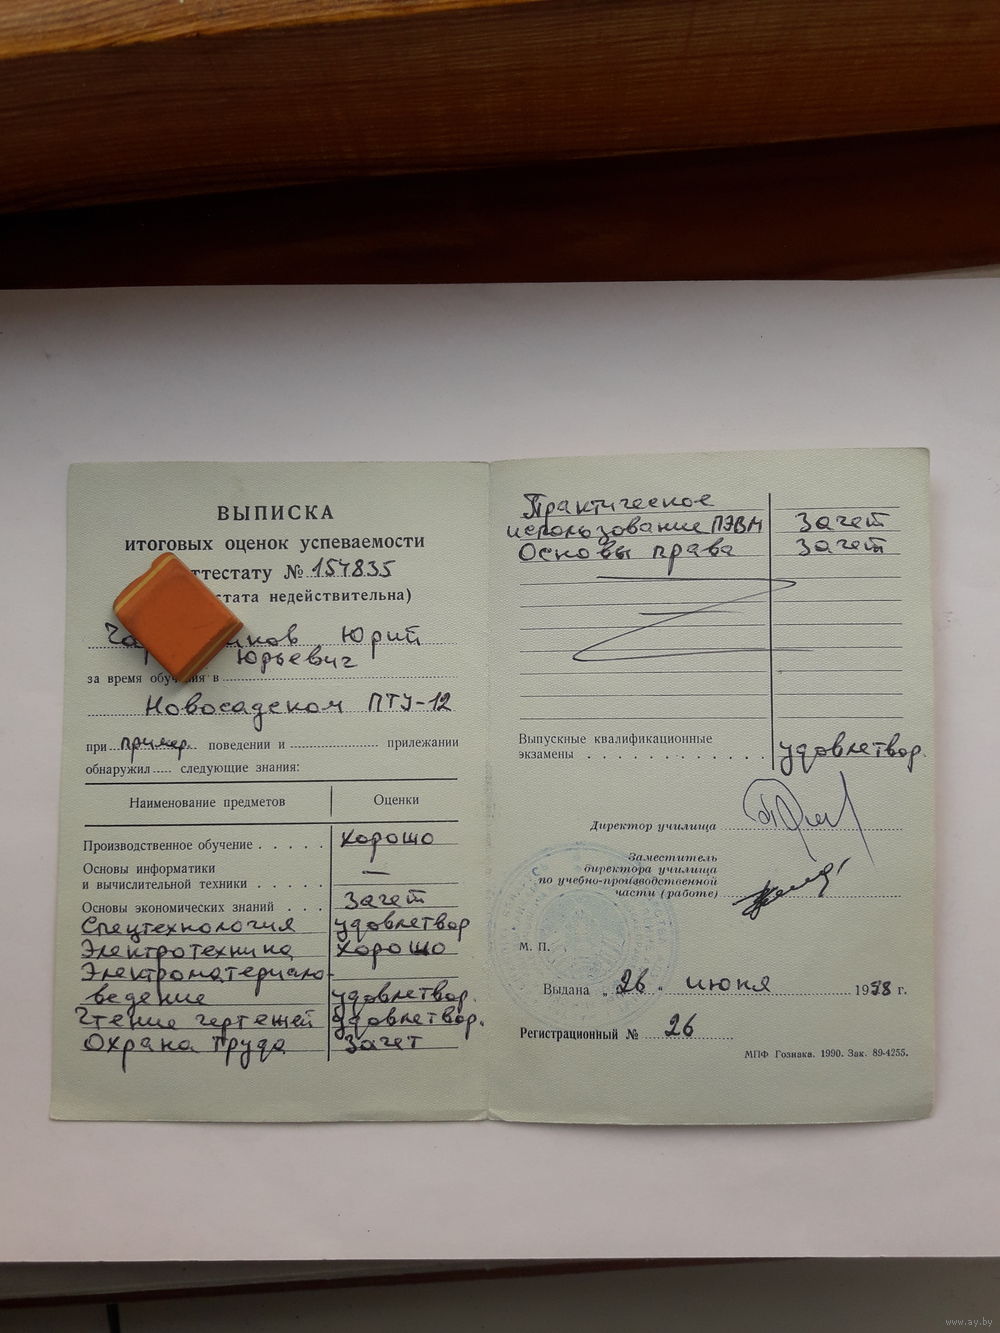 ВЫПИСКА
итоговых оценок успеваемости
аттестату № 154835
недействительна)
Юрий
Юрьевич
за время обучения в
Новосадском ПТУ-12
при пример. поведении и прилежании
обнаружил следующие знания:
Наименование предметов Оценки
Производственное обучение хорошо
Основы информатики
и вычислительной техники —
Основы экономических знаний Зачет
Спецтехнология удовлетвор
Электротехника хорошо
Электроматериало-
ведение удовлетвор.
Чтение чертежей удовлетвор.
Охрана труда Зачет
Практическое
использование ПЭВМ Зачет
Основы права Зачет
Выпускные квалификационные
экзамены удовлетвор.
Директор училища
Заместитель
директора училища
по учебно-производственной
части (работе)
М. П.
Выдана „26“ июня 1998 г.
Регистрационный № 26
МПФ Гознака. 1990. Зак. 89-4255.
www.ay.by